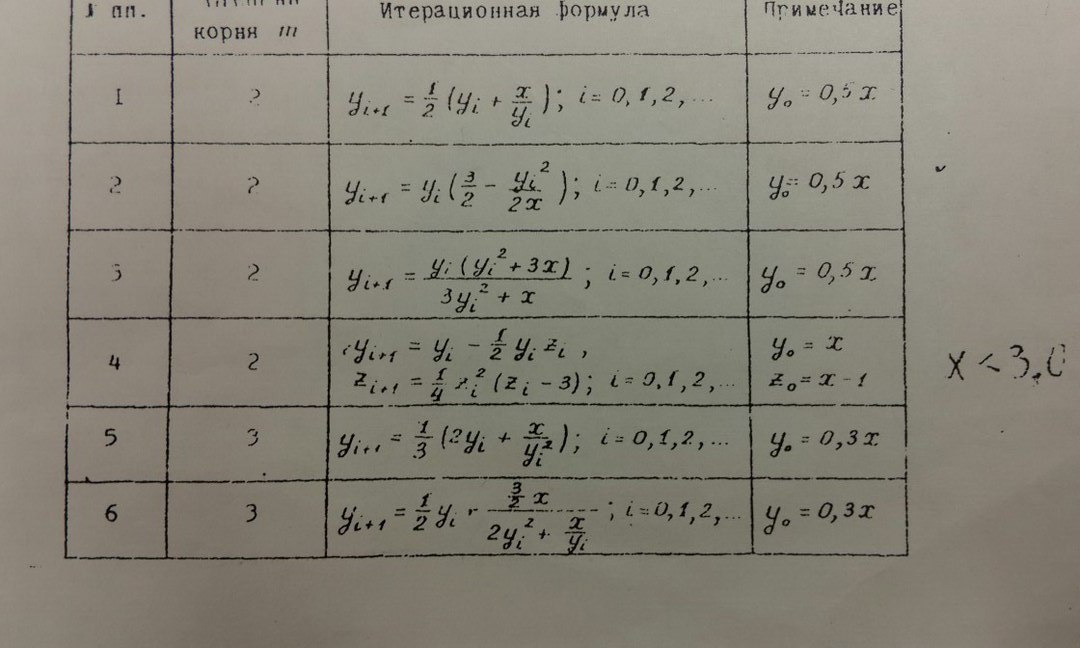 № пп. корня m Итерационная формула Примечание
1 2 y_{i+1} = \frac{1}{2} (y_i + \frac{x}{y_i}); i = 0,1,2,... y_0 = 0,5 x
2 2 y_{i+1} = y_i (\frac{3}{2} - \frac{y_i^2}{2x}); i = 0,1,2,... y_0 = 0,5 x
3 2 y_{i+1} = \frac{y_i (y_i^2 + 3x)}{3y_i^2 + x}; i = 0,1,2,... y_0 = 0,5 x
4 2 y_{i+1} = y_i - \frac{1}{2} y_i z_i, y_0 = x
z_{i+1} = \frac{1}{4} z_i^2 (z_i - 3); i = 0,1,2,... z_0 = x - 1
x < 3.0
5 3 y_{i+1} = \frac{1}{3} (2y_i + \frac{x}{y_i^2}); i = 0,1,2,... y_0 = 0,3x
6 3 y_{i+1} = \frac{1}{2} y_i + \frac{\frac{3}{2} x}{2y_i^2 + \frac{x}{y_i}}; i = 0,1,2,... y_0 = 0,3x